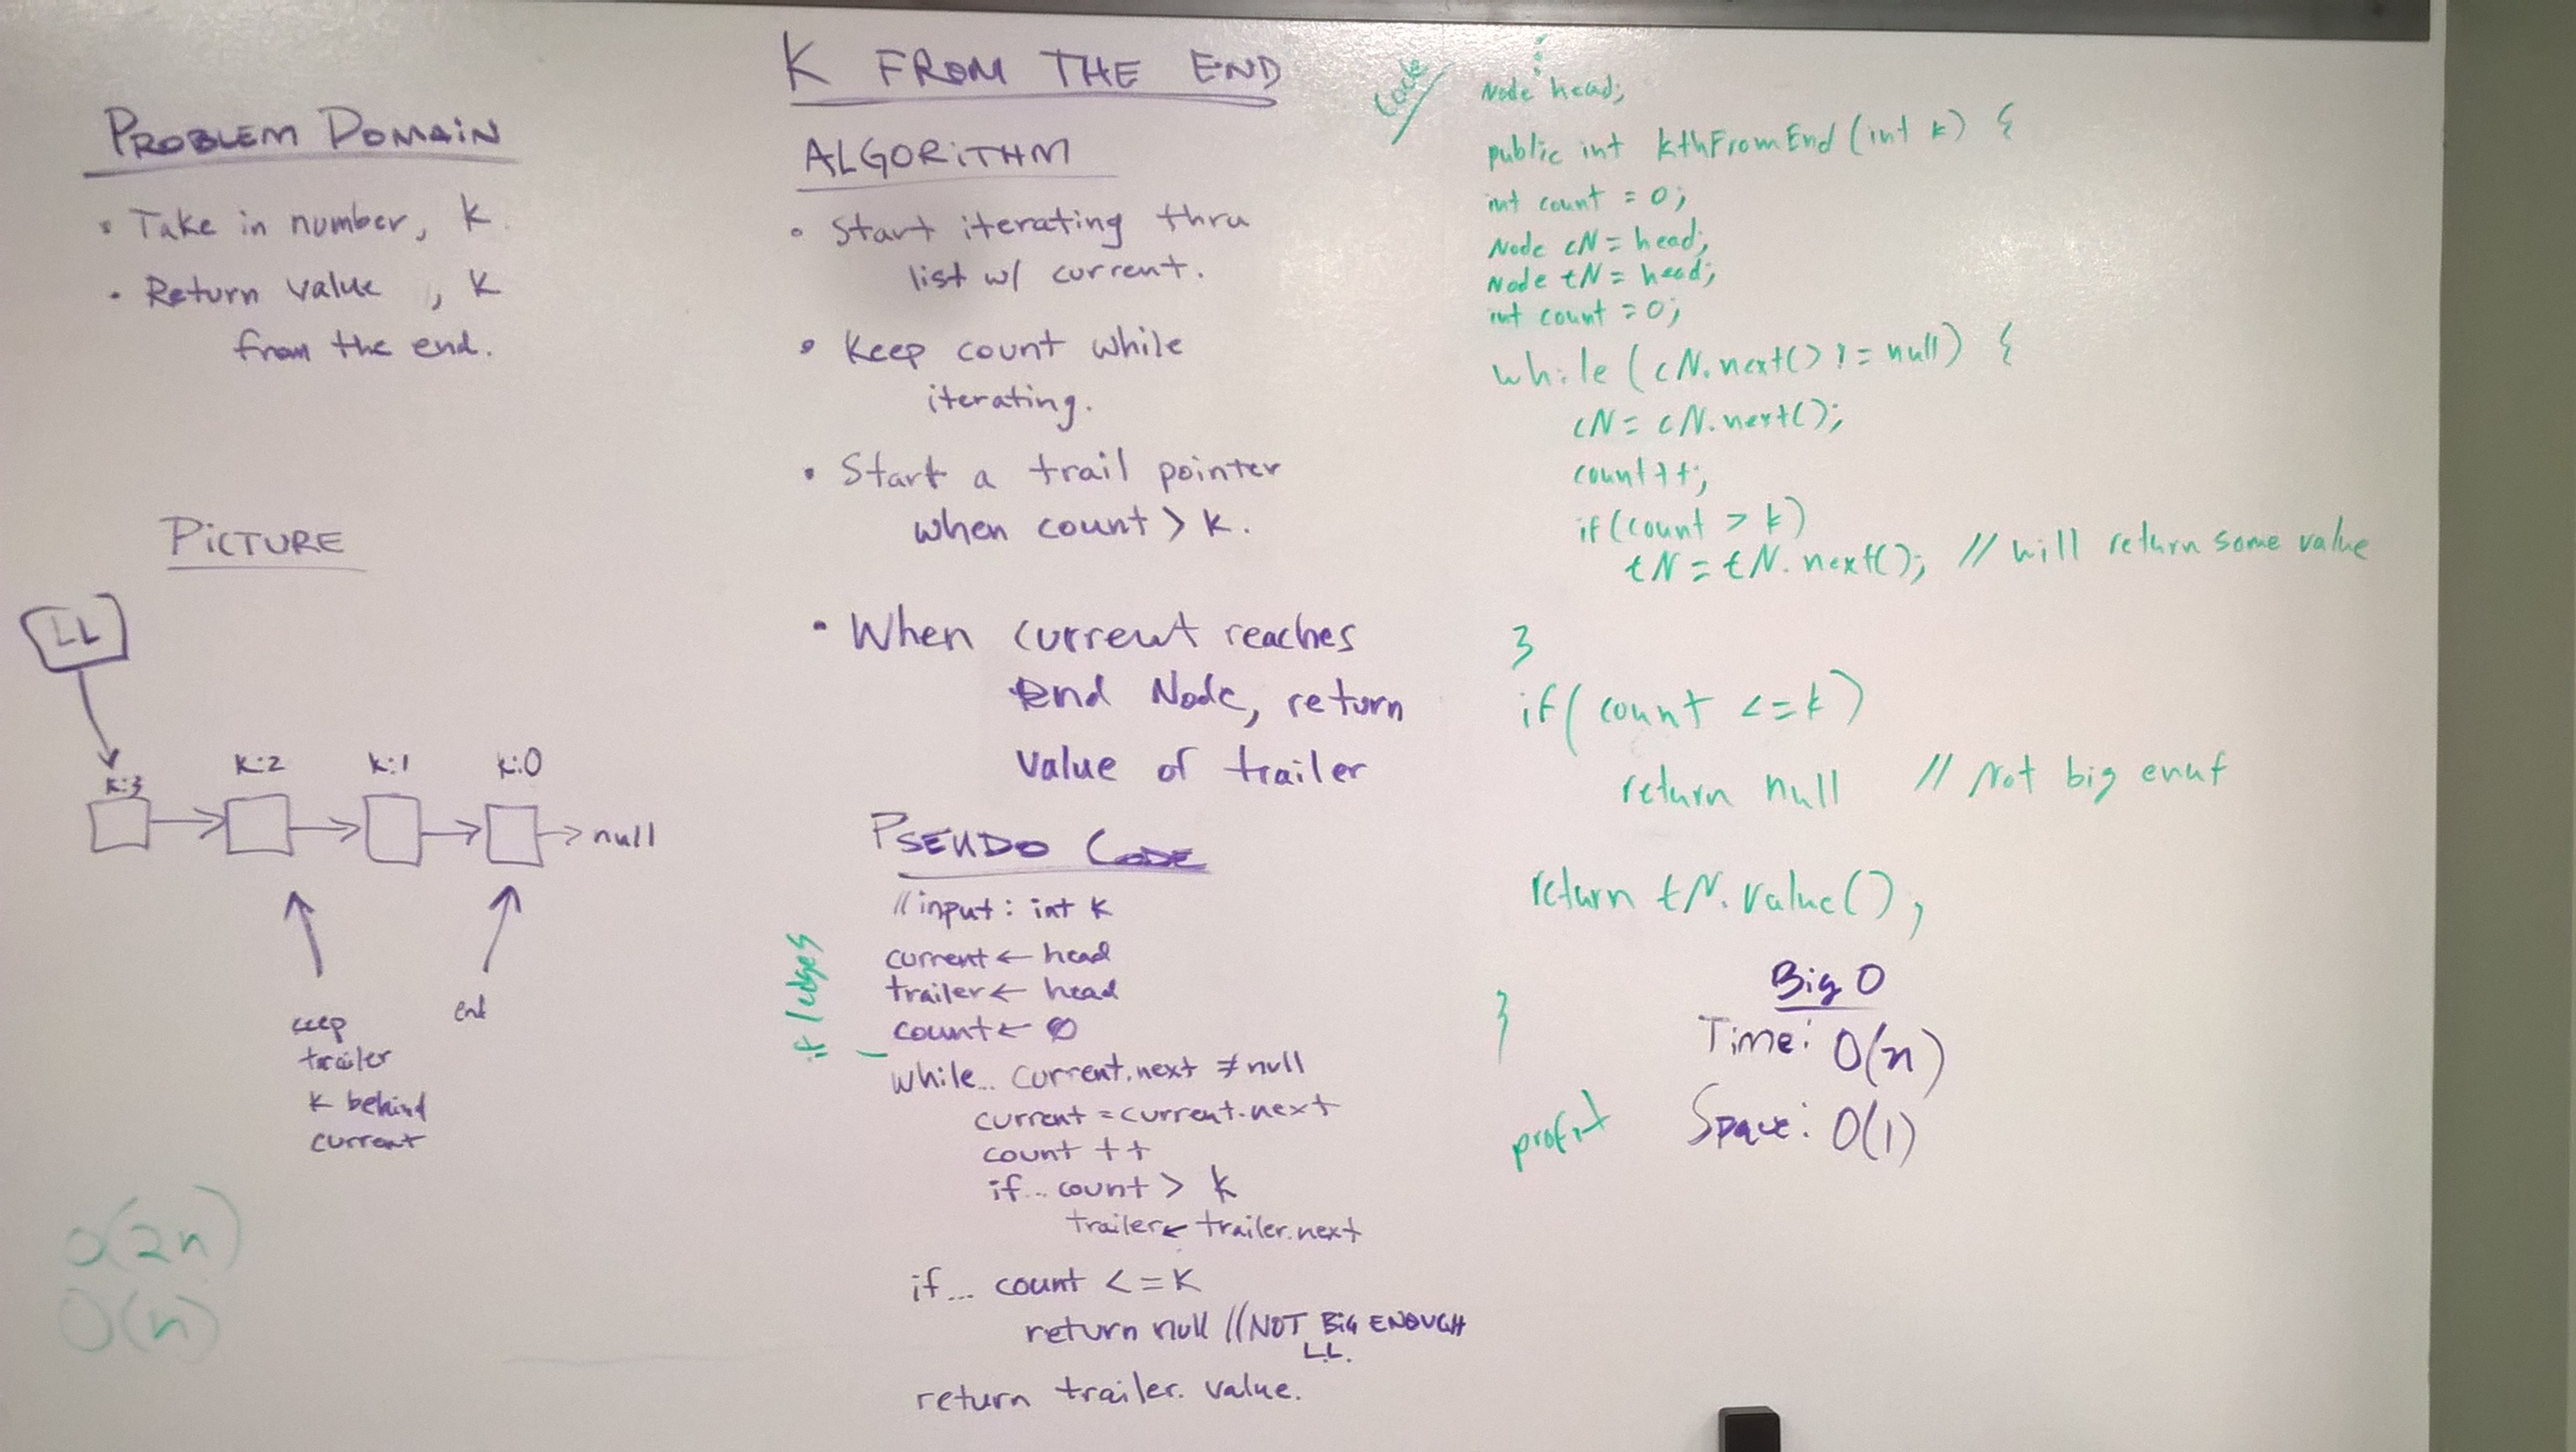 K FROM THE END
PROBLEM DOMAIN
• Take in number, K.
• Return value , K
from the end.
PICTURE
LL
K:3
K:2
K:1
K:0
null
keep
trailer
K behind
current
end
O(2n)
O(n)
ALGORITHM
• Start iterating thru
list w/ current.
• Keep count while
iterating.
• Start a trail pointer
when count > K.
• When current reaches
End Node, return
value of trailer
PSEUDO CODE
// input : int K
current ← head
trailer ← head
count ← 0
while... current.next ≠ null
current = current.next
count ++
if... count > K
trailer ← trailer.next
if... count <= K
return null // NOT BIG ENOUGH
LL.
return trailer. value.
if edges
Code
Node head;
public int kthFromEnd (int k) {
int count = 0;
Node cN = head;
Node tN = head;
int count = 0;
while (cN.next() != null) {
cN = cN.next();
count++;
if (count > k)
tN = tN.next(); // will return some value
}
if ( count <= k )
return null // Not big enuf
return tN.value();
}
profit
Big O
Time: O(n)
Space: O(1)